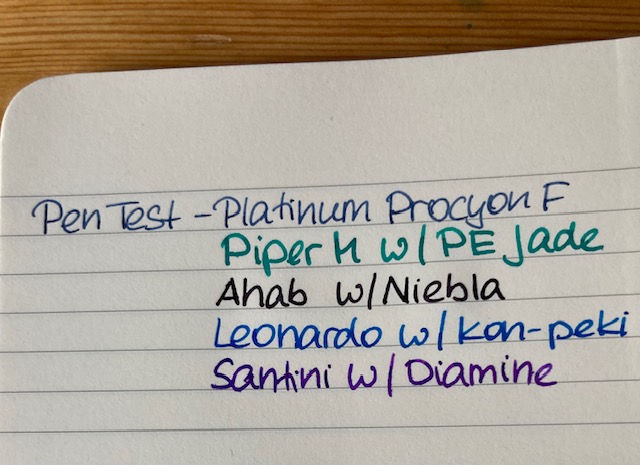 Pen Test - Platinum Procyon F
Piper M w/ PE Jade
Ahab w/ Niebla
Leonardo w/ kon-peki
Santini w/ Diamine